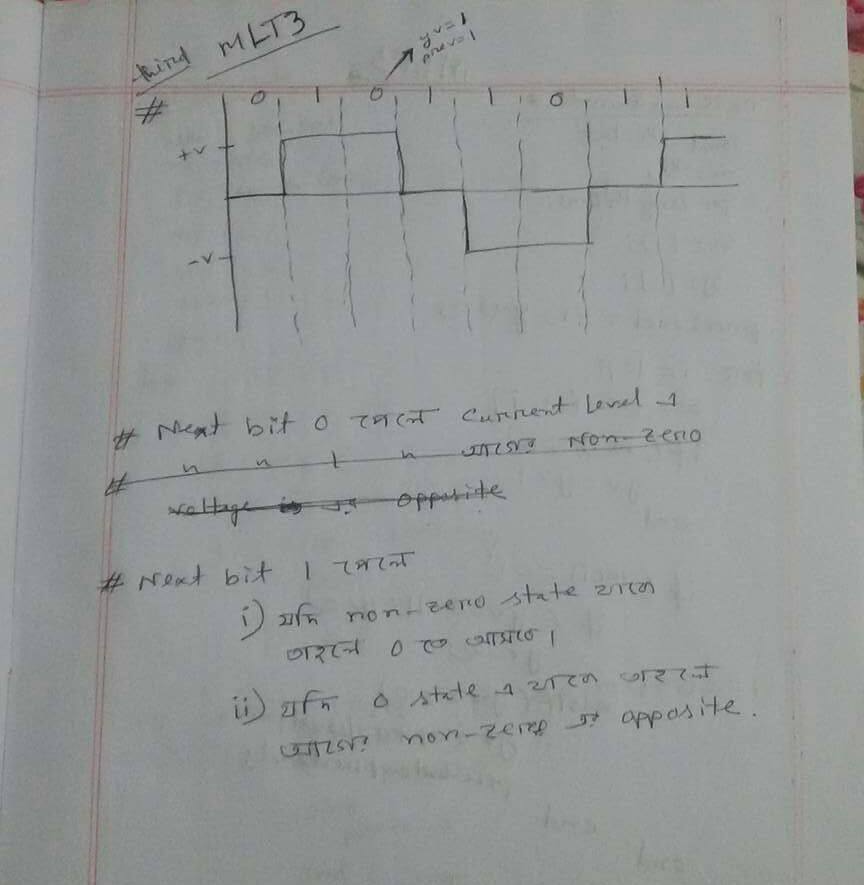 third MLT3
yv=1
prev=1
# 0 1 0 1 1 0 1 1
+v
-v
# Next bit 0 পেলে current level এ
# " " 1 " আগের Non-zero
voltage is এর opposite
# Next bit 1 পেলে
i) যদি non-zero state থাকে
তাহলে 0 তে আসবে।
ii) যদি 0 state এ থাকে তাহলে
আগের non-zero এর opposite.